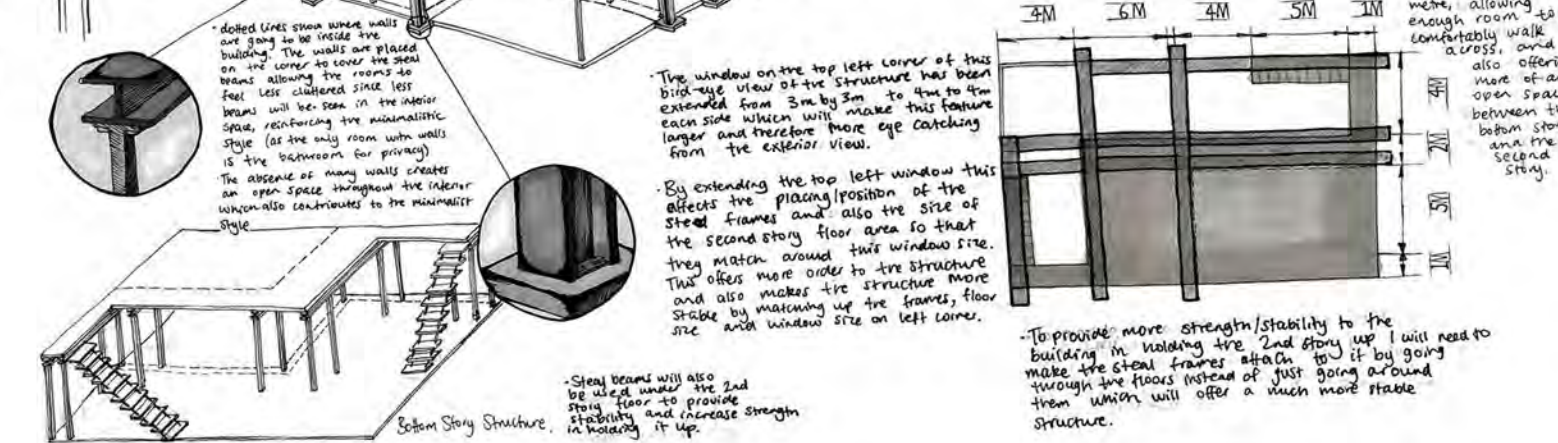 · dotted lines show where walls
are going to be inside the
building. The walls are placed
on the corner to cover the steal
beams allowing the rooms to
feel less cluttered since less
beams will be seen in the interior
space, reinforcing the minimalistic
style (as the only room with walls
is the bathroom for privacy)
· The absence of many walls creates
an open space throughout the interior
which also contributes to the minimalist
style
Bottom Story Structure.
· Steal beams will also
be used under the 2nd
story floor to provide
stability and increase strength
in holding it up.
· The window on the top left corner of this
bird-eye view of the structure has been
extended from 3m by 3m to 4m to 4m
each side which will make this feature
larger and therefore more eye catching
from the exterior view.
· By extending the top left window this
affects the placing/position of the
steel frames and also the size of
the second story floor area so that
they match around this window size.
This offers more order to the structure
and also makes the structure more
stable by matching up the frames, floor
size and window size on left corner.
4M 6M 4M 5M 1M
4M
2M
5M
1M
metre, allowing
enough room to
comfortably walk
across, and
also offering
more of an
open space
between the
bottom story
and the
second
story.
· To provide more strength/stability to the
building in holding the 2nd story up I will need to
make the steal frames attach to it by going
through the floors instead of just going around
them which will offer a much more stable
structure.